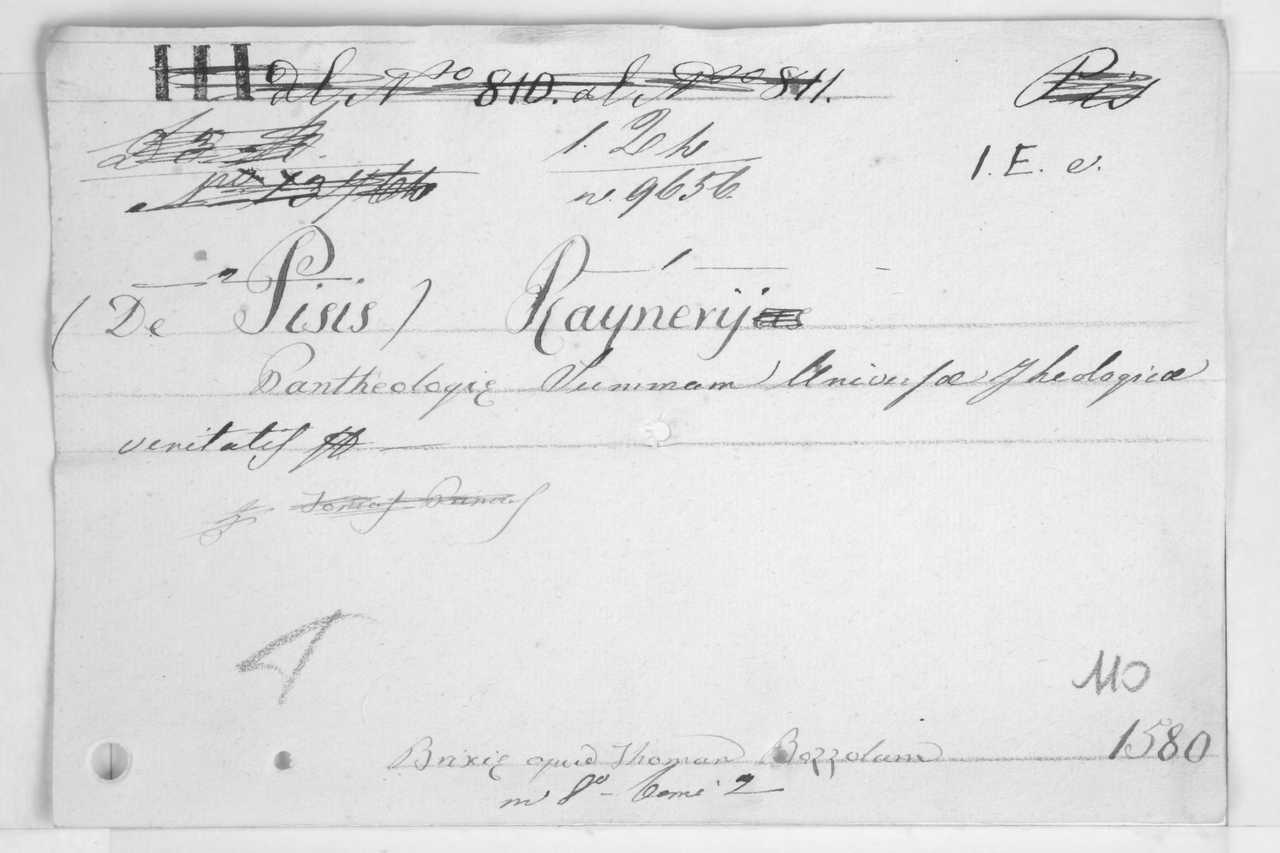 al Nro 810. al Nro 811. Pis
1. 2 h
1. E. e.
n. 9656.
2 1
(De Pisis) Raynerij
Pantheologię Summam Universæ Theologicæ
veritatis
Tomus Primus
MO
1580
Brixię apud Thomam Bozzolam
in 8o Tomi 2